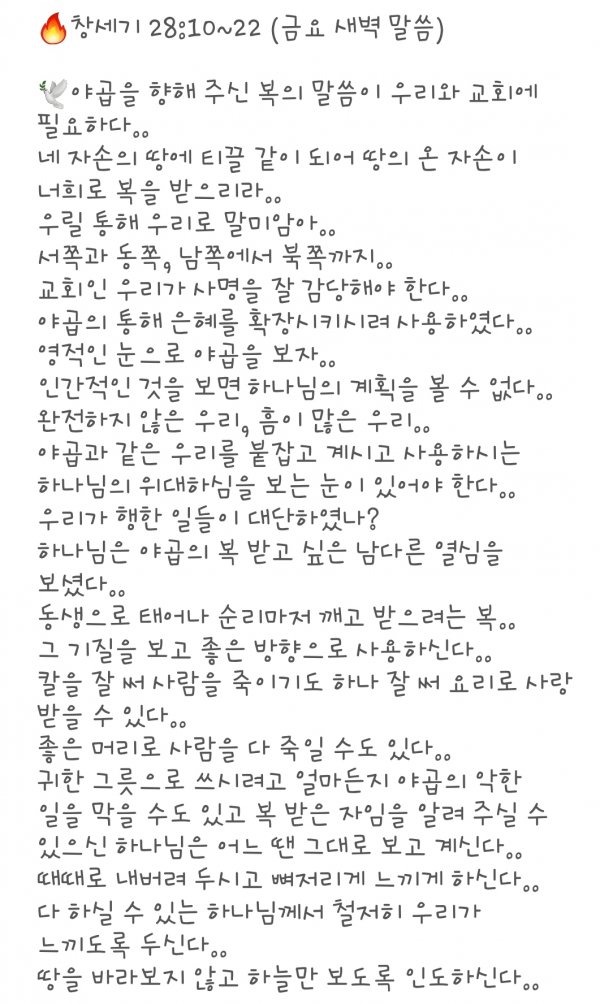 🔥창세기 28:10~22 (금요 새벽 말씀)
🕊야곱을 향해 주신 복의 말씀이 우리와 교회에
필요하다..
네 자손의 땅에 티끌 같이 되어 땅의 온 자손이
너희로 복을 받으리라..
우릴 통해 우리로 말미암아..
서쪽과 동쪽, 남쪽에서 북쪽까지..
교회인 우리가 사명을 잘 감당해야 한다..
야곱의 통해 은혜를 확장시키시려 사용하였다..
영적인 눈으로 야곱을 보자..
인간적인 것을 보면 하나님의 계획을 볼 수 없다..
완전하지 않은 우리, 흠이 많은 우리..
야곱과 같은 우리를 붙잡고 계시고 사용하시는
하나님의 위대하심을 보는 눈이 있어야 한다..
우리가 행한 일들이 대단하였나?
하나님은 야곱의 복 받고 싶은 남다른 열심을
보셨다..
동생으로 태어나 순리마저 깨고 받으려는 복..
그 기질을 보고 좋은 방향으로 사용하신다..
칼을 잘 써 사람을 죽이기도 하나 잘 써 요리로 사랑
받을 수 있다..
좋은 머리로 사람을 다 죽일 수도 있다..
귀한 그릇으로 쓰시려고 얼마든지 야곱의 악한
일을 막을 수도 있고 복 받은 자임을 알려 주실 수
있으신 하나님은 어느 땐 그대로 보고 계신다..
때때로 내버려 두시고 뼈저리게 느끼게 하신다..
다 하실 수 있는 하나님께서 철저히 우리가
느끼도록 두신다..
땅을 바라보지 않고 하늘만 보도록 인도하신다..